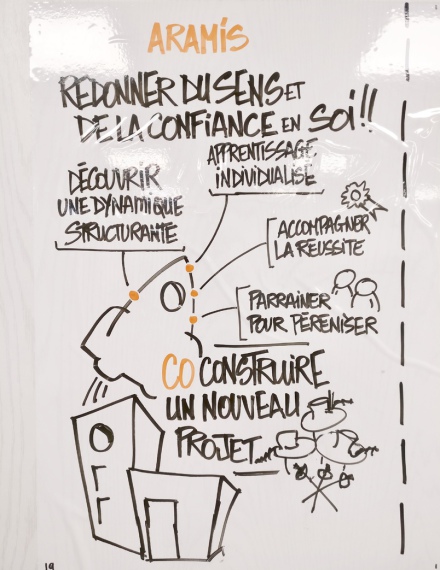 ARAMIS
REDONNER DU SENS ET
DE LA CONFIANCE EN SOI!!
APPRENTISSAGE
INDIVIDUALISÉ
DÉCOUVRIR
UNE DYNAMIQUE
STRUCTURANTE
ACCOMPAGNER
LA REUSSITE
PARRAINER
POUR PÉRENISER
CO CONSTRUIRE
UN NOUVEAU
PROJET...
19